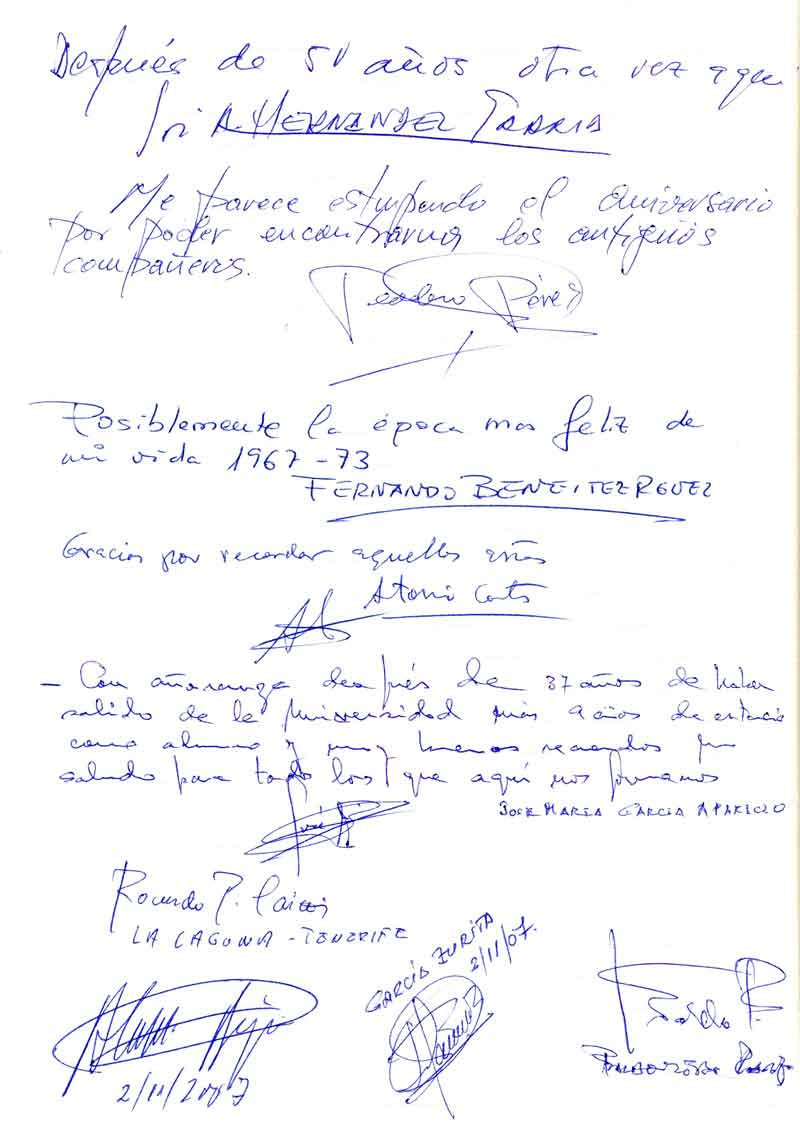 Después de 50 años otra vez aquí
A. HERNANDEZ
Me parece estupendo el aniversario
por poder encontrarnos los antiguos
compañeros.
Pérez
Posiblemente la época mas feliz de
mi vida 1967-73
FERNANDO BENEITEZ RGUEZ
Gracias por recordar aquellos años
- Con añoranza después de 37 años de haber
salido de la Universidad más 9 años de estancia
como alumno y muy buenos recuerdos un
saludo para todos los que aquí nos formamos
JOSE MARIA GARCIA APARICIO
Ricardo P.
LA LAGUNA - TENERIFE
GARCÍA ZURITA
2/11/07.
2/11/2007